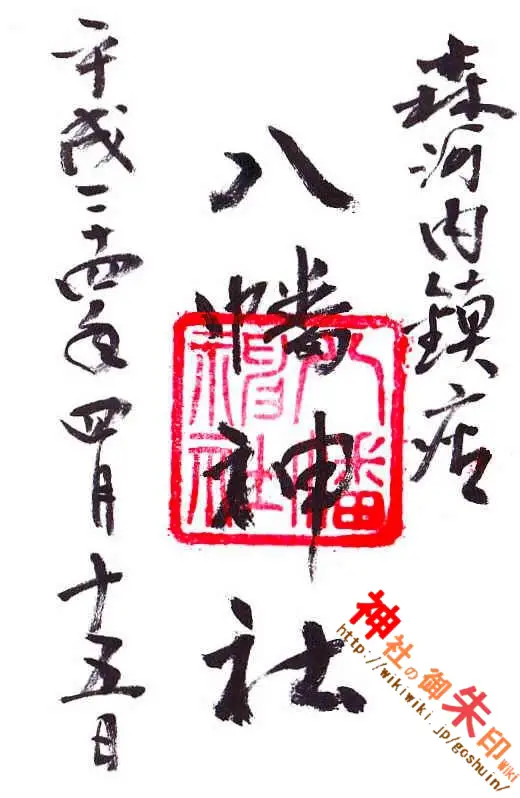 森河内鎮座
八幡神社
八幡神社
平成二十四年四月十五日
神社の御朱印Wiki
http://wikiwiki.jp/goshuin/